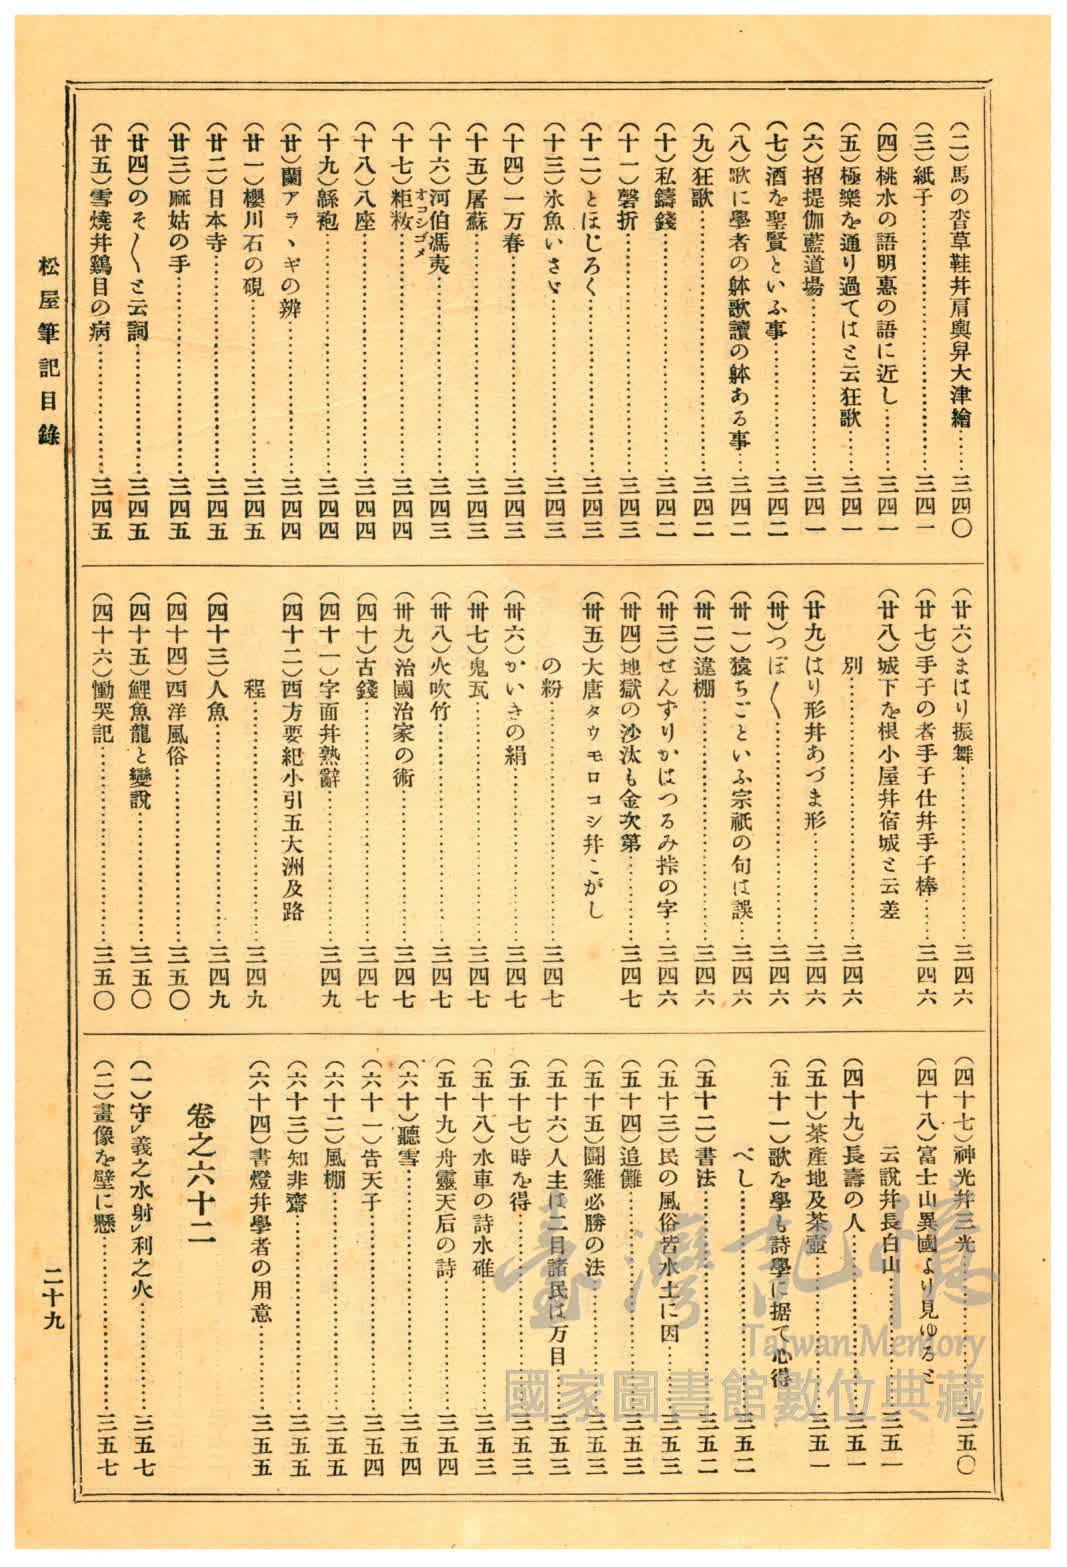 (二)馬の沓草鞋幷肩輿舁大津繪……三四〇
(三)紙子……三四一
(四)桃水の語明惠の語に近し……三四一
(五)極樂を通り過てはと云狂歌……三四一
(六)招提伽藍道場……三四一
(七)酒を聖賢といふ事……三四二
(八)歌に學者の躰歌讀の躰ある事……三四二
(九)狂歌……三四二
(十)私鑄錢……三四二
(十一)磬折……三四三
(十二)とほじろく……三四三
(十三)氷魚いさゞ……三四三
(十四)一万春……三四三
(十五)屠蘇……三四三
(十六)河伯馮夷……三四三
(十七)粔籹オコシゴメ……三四四
(十八)八座……三四四
(十九)緜袍……三四四
(廿)蘭アラヽギの辨……三四四
(廿一)櫻川石の硯……三四五
(廿二)日本寺……三四五
(廿三)麻姑の手……三四五
(廿四)のそ〳〵と云詞……三四五
(廿五)雪燒幷鷄目の病……三四五
(廿六)まはり振舞……三四六
(廿七)手子の者手子仕幷手子棒……三四六
(廿八)城下を根小屋幷宿城と云差
別……三四六
(廿九)はり形幷あづま形……三四六
(卅)つぼ〳〵……三四六
(卅一)猿ちごといふ宗祇の句は誤……三四六
(卅二)違棚……三四六
(卅三)せんずりかはつるみ𢪸の字……三四六
(卅四)地獄の沙汰も金次第……三四七
(卅五)大唐タウモロコシ幷こがし
の粉……三四七
(卅六)かいきの絹……三四七
(卅七)鬼瓦……三四七
(卅八)火吹竹……三四七
(卅九)治國治家の術……三四七
(四十)古錢……三四七
(四十一)字面幷熟辭……三四九
(四十二)西方要紀小引五大洲及路
程……三四九
(四十三)人魚……三四九
(四十四)西洋風俗……三五〇
(四十五)鯉魚龍と變說……三五〇
(四十六)慟哭記……三五〇
(四十七)神光幷三光……三五〇
(四十八)富士山異國より見ゆると
云說幷長白山……三五一
(四十九)長壽の人……三五一
(五十)茶產地及茶壺……三五一
(五十一)歌を學も詩學に据て心得
べし……三五二
(五十二)書法……三五二
(五十三)民の風俗皆水土に因……三五三
(五十四)追儺……三五三
(五十五)鬪雞必勝の法……三五三
(五十六)人主は二目諸民は万目……三五三
(五十七)時を得……三五三
(五十八)水車の詩水碓……三五三
(五十九)舟靈天后の詩……三五四
(六十)聽雪……三五四
(六十一)告天子……三五四
(六十二)風棚……三五五
(六十三)知非齋……三五五
(六十四)書燈幷學者の用意……三五五
卷之六十二
(一)守㆑義之水射㆑利之火……三五七
(二)畫像を壁に懸……三五七
松屋筆記目錄
二十九
臺灣記憶
Taiwan Memory
國家圖書館數位典藏